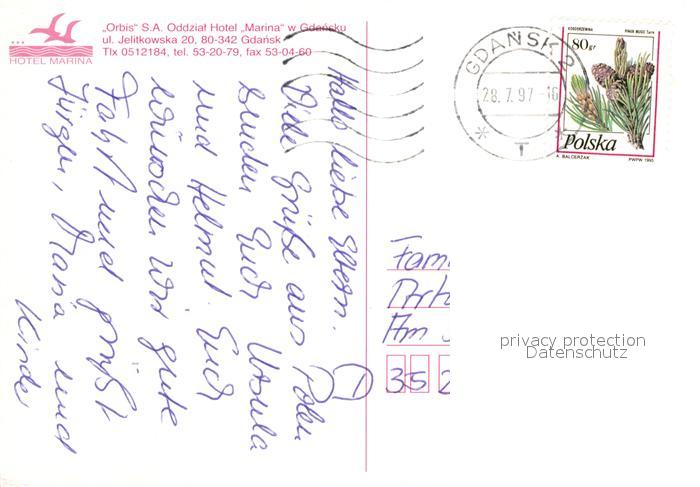 „Orbis" S.A. Oddział Hotel „Marina" w Gdańsku
ul. Jelitkowska 20, 80-342 Gdańsk
Tlx 0512184, tel. 53-20-79, fax 53-04-60
HOTEL MARINA
Hallo liebe Eltern.
Viele Grüße aus Polen
senden Euch Ursula
und Helmut. Euch
wünschen wir gute
Fahrt und grüßt
Jürgen, Maria und
Kinder
GDAŃSK
28.7.97-16
T
KOSODRZEWINA PINUS MUGO Turra
80 gr
Polska
A. BALCERZAK PWPW 1995
Fam
Am
35 2
privacy protection
Datenschutz